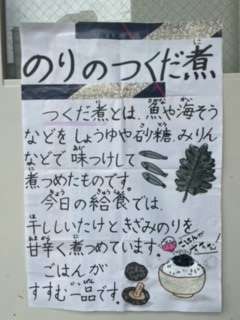 のりのつくだ煮
つくだ煮とは、魚や海そう
などをしょうゆや砂糖、みりん
などで味つけして
煮つめたものです。
今日の給食では、
干ししいたけときざみのりを
甘辛く煮つめています。
ごはんが
すすむ一品です。
ごはんが